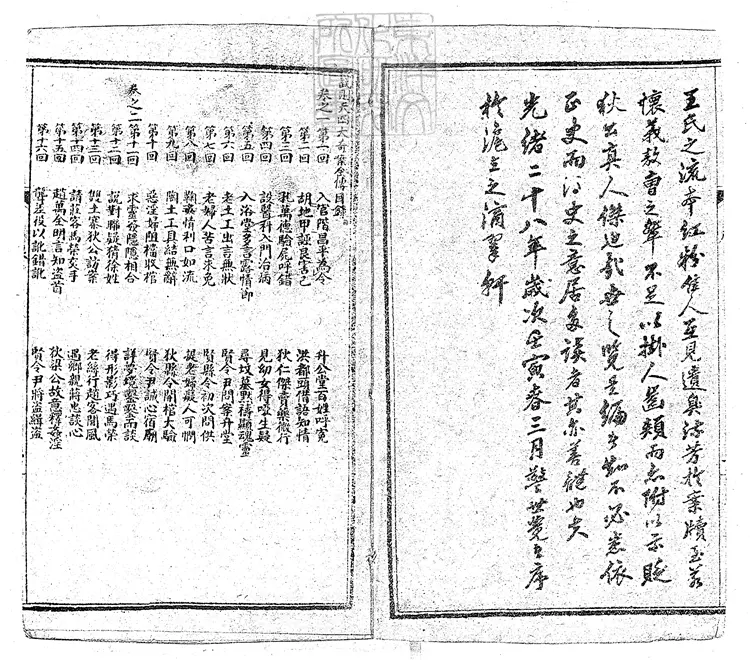 王氏之流本紅粉佳人互見遺臭流芳於案牘至若
懷義敖曹之輩不足以掛人齒頰而亦附以示貶
狄公真人傑也哉世之覽是編者知不必悉依
正史而得史之意居多讀者其亦善體也夫
光緒二十八年歲次壬寅春三月警世覺者序
於滬上之滴翠軒
則天四大奇案全傳目錄
卷之一
第一回 入官階昌平為令 升公堂百姓呼冤
第二回 胡地甲誣良害己 洪都頭借語知情
第三回 孔萬德驗屍呼錯 狄仁傑賣藥微行
第四回 設醫科入門治病 見幼女得啞生疑
第五回 入浴堂多言露情節 尋墳墓默禱顯魂靈
第六回 老土工出言無狀 賢令尹問案升堂
第七回 老婦人苦言求免 賢縣令初次問供
第八回 鞫案情利口如流 提老婦癡人可憫
第九回 陶土工具結無辭 狄縣令開棺大驗
第十回 惡淫婦阻擋收棺 賢令尹誠心宿廟
卷之二
第十一回 求靈簽隱隱相合 詳夢境鑿鑿而談
第十二回 說對聯疑猜徐姓 得形影巧遇馬榮
第十三回 雙土寨狄公訪案 老絲行趙客聞風
第十四回 請莊客馬榮交手 遇鄉親蔣忠談心
第十五回 趙萬全明言知盜首 狄梁公故意釋姦淫
第十六回 聾差役以訛錯訛 賢令尹將盜緝盜